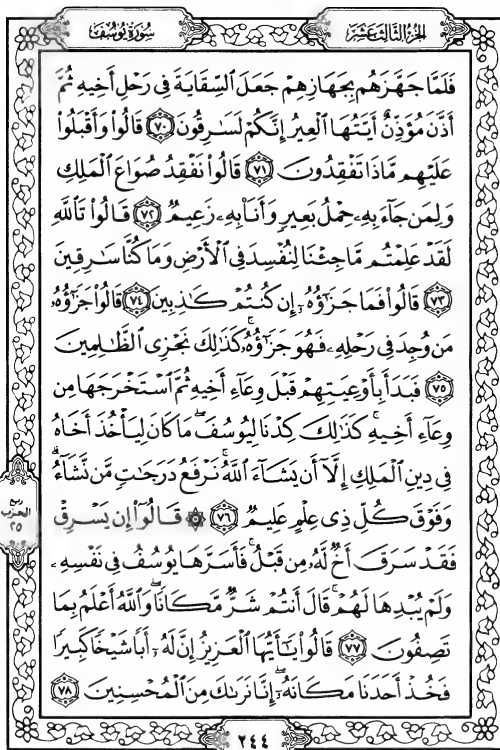 سُورَةُ يُوسُفَ
الجُزْءُ الثَّالِثَ عَشَرَ
فَلَمَّا جَهَّزَهُم بِجَهَازِهِمْ جَعَلَ ٱلسِّقَايَةَ فِى رَحْلِ أَخِيهِ ثُمَّ
أَذَّنَ مُؤَذِّنٌ أَيَّتُهَا ٱلْعِيرُ إِنَّكُمْ لَسَـٰرِقُونَ ٧٠ قَالُوا۟ وَأَقْبَلُوا۟
عَلَيْهِم مَّاذَا تَفْقِدُونَ ٧١ قَالُوا۟ نَفْقِدُ صُوَاعَ ٱلْمَلِكِ
وَلِمَن جَآءَ بِهِۦ حِمْلُ بَعِيرٍ وَأَنَا۠ بِهِۦ زَعِيمٌ ٧٢ قَالُوا۟ تَٱللَّهِ
لَقَدْ عَلِمْتُم مَّا جِئْنَا لِنُفْسِدَ فِى ٱلْأَرْضِ وَمَا كُنَّا سَـٰرِقِينَ
٧٣ قَالُوا۟ فَمَا جَزَٰٓؤُهُۥٓ إِن كُنتُمْ كَـٰذِبِينَ ٧٤ قَالُوا۟ جَزَٰٓؤُهُۥ
مَن وُجِدَ فِى رَحْلِهِۦ فَهُوَ جَزَٰٓؤُهُۥ ۚ كَذَٰلِكَ نَجْزِى ٱلظَّـٰلِمِينَ
٧٥ فَبَدَأَ بِأَوْعِيَتِهِمْ قَبْلَ وِعَآءِ أَخِيهِ ثُمَّ ٱسْتَخْرَجَهَا مِن
وِعَآءِ أَخِيهِ ۚ كَذَٰلِكَ كِدْنَا لِيُوسُفَ ۖ مَا كَانَ لِيَأْخُذَ أَخَاهُ
فِى دِينِ ٱلْمَلِكِ إِلَّآ أَن يَشَآءَ ٱللَّهُ ۚ نَرْفَعُ دَرَجَـٰتٍ مَّن نَّشَآءُ ۗ
وَفَوْقَ كُلِّ ذِى عِلْمٍ عَلِيمٌ ٧٦ ۞ قَالُوٓا۟ إِن يَسْرِقْ
فَقَدْ سَرَقَ أَخٌ لَّهُۥ مِن قَبْلُ ۚ فَأَسَرَّهَا يُوسُفُ فِى نَفْسِهِۦ
وَلَمْ يُبْدِهَا لَهُمْ ۚ قَالَ أَنتُمْ شَرٌّ مَّكَانًا ۖ وَٱللَّهُ أَعْلَمُ بِمَا
تَصِفُونَ ٧٧ قَالُوا۟ يَـٰٓأَيُّهَا ٱلْعَزِيزُ إِنَّ لَهُۥٓ أَبًا شَيْخًا كَبِيرًا
فَخُذْ أَحَدَنَا مَكَانَهُۥٓ ۖ إِنَّا نَرَىٰكَ مِنَ ٱلْمُحْسِنِينَ ٧٨
ربع
الحزب
٢٥
٢٤٤